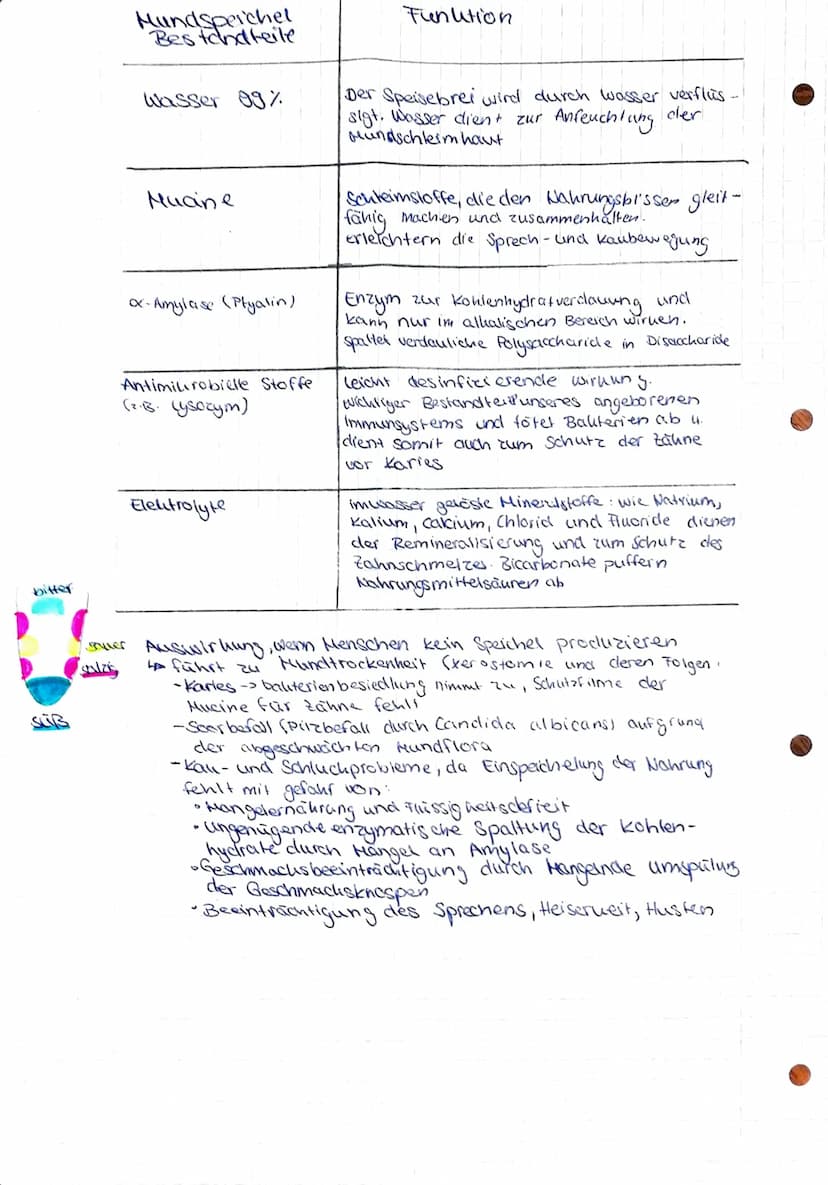 Mundspeichel
Bestandteile
Funktion
Wasser 99%
Der Speisebrei wird durch Wasser verflüs-
sigt. Wasser dient zur Anfeuchtung der
Mundschleimhaut
Mucine
Schleimstoffe, die den Nahrungsbissen gleit-
fähig machen und zusammenhalten.
Erleichtern die Sprech- und Kaubewegung
α-Amylase (Ptyalin)
Enzym zur Kohlenhydratverdauung und
kann nur im alkalischen Bereich wirken.
Spaltet verdauliche Polysaccharide in Disaccharide
Antimikrobielle Stoffe
(z.B. Lysozym)
Leicht desinfizierende Wirkung.
Wichtiger Bestandteil unseres angeborenen
Immunsystems und tötet Bakterien ab u.
dient somit auch zum Schutz der Zähne
vor Karies
Elektrolyte
im Wasser gelöste Mineralstoffe: wie Natrium,
Kalium, Calcium, Chlorid und Fluoride dienen
der Remineralisierung und zum Schutz des
Zahnschmelzes. Bicarbonate puffern
Nahrungsmittelsäuren ab
bitter
sauer
salzig
süß
Auswirkung, wenn Menschen kein Speichel produzieren
↳ führt zu Mundtrockenheit (Xerostomie und deren Folgen.
- Karies -> bakterienbesiedlung nimmt zu, Schutzfilme der
Mucine für Zähne fehlt
- Soorbefall (Pilzbefall durch Candida albicans) aufgrund
der abgeschwächten Mundflora
- Kau- und Schluckprobleme, da Einspeichelung der Nahrung
fehlt mit gefahr von:
• Mangelernährung und Flüssigkeitsdefizit
• Ungenügende enzymatische Spaltung der Kohlen-
hydrate durch Mangel an Amylase
• Geschmacksbeeinträchtigung durch Mangelnde umspülung
der Geschmacksknospen
• Beeinträchtigung des Sprechens, Heiserkeit, Husten